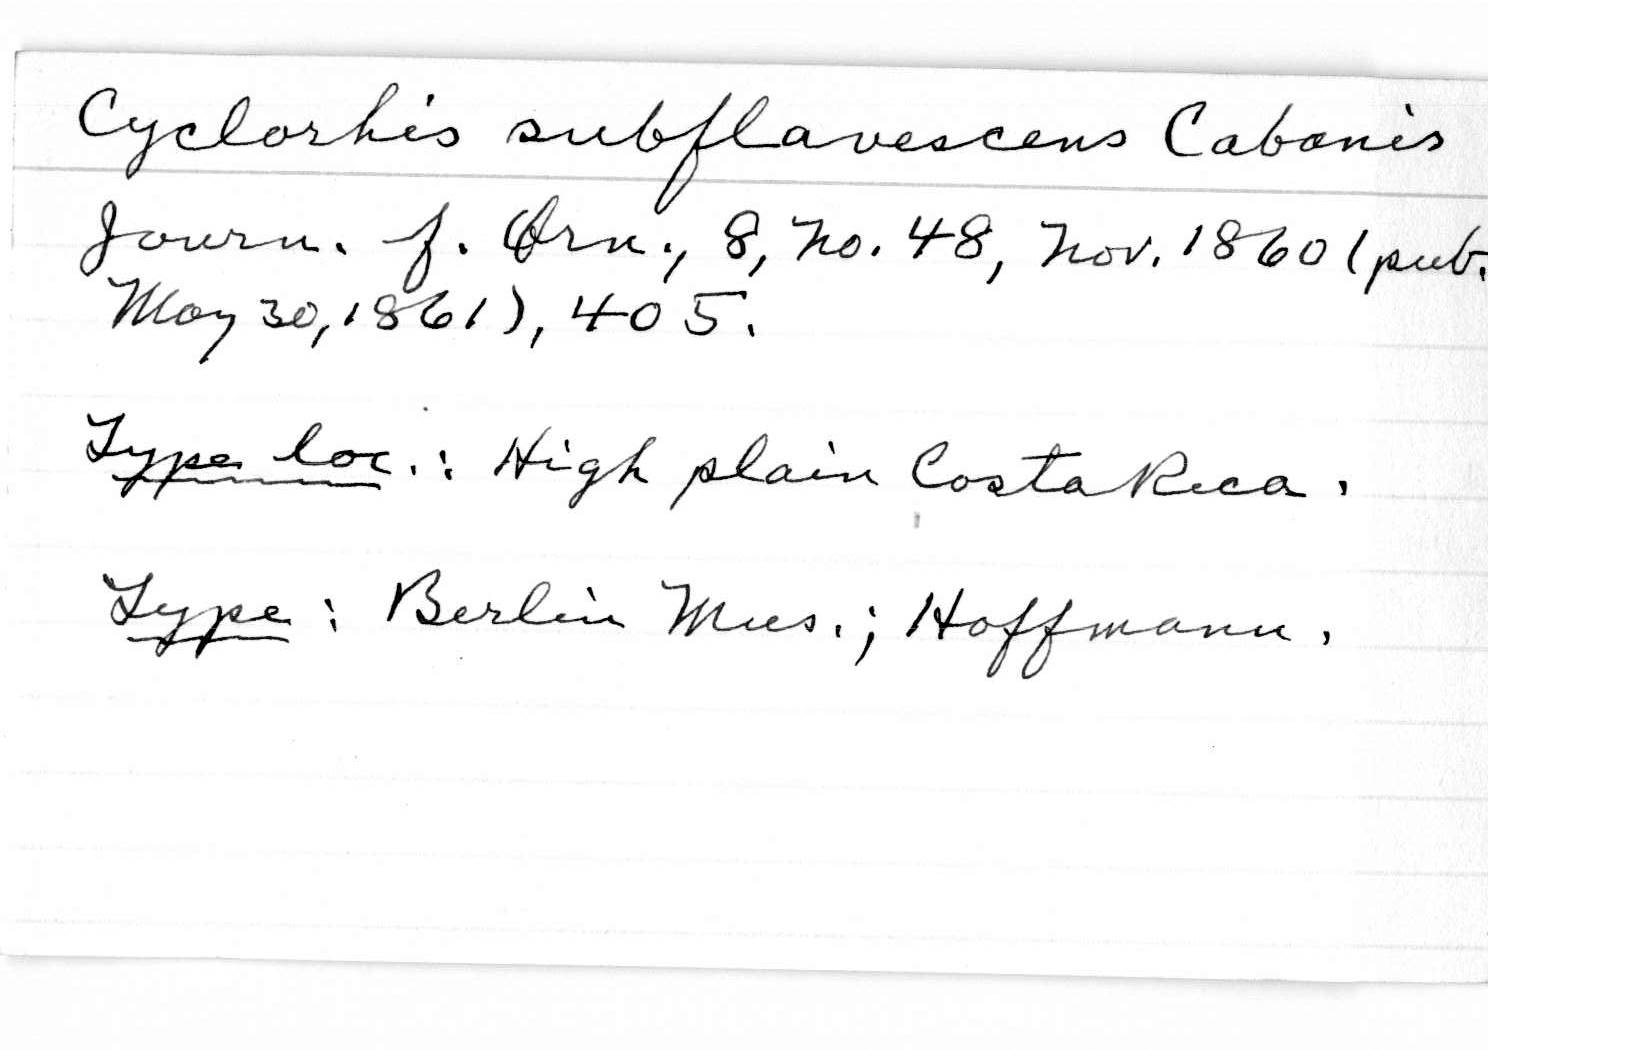 Cyclorhis subflavescens Cabanis
Journ. f. Orn., 8, no. 48, Nov. 1860 (pub.
May 30, 1861), 405.
Type loc.: High plain Costa Rica.
Type: Berlin Mus.; Hoffmann.